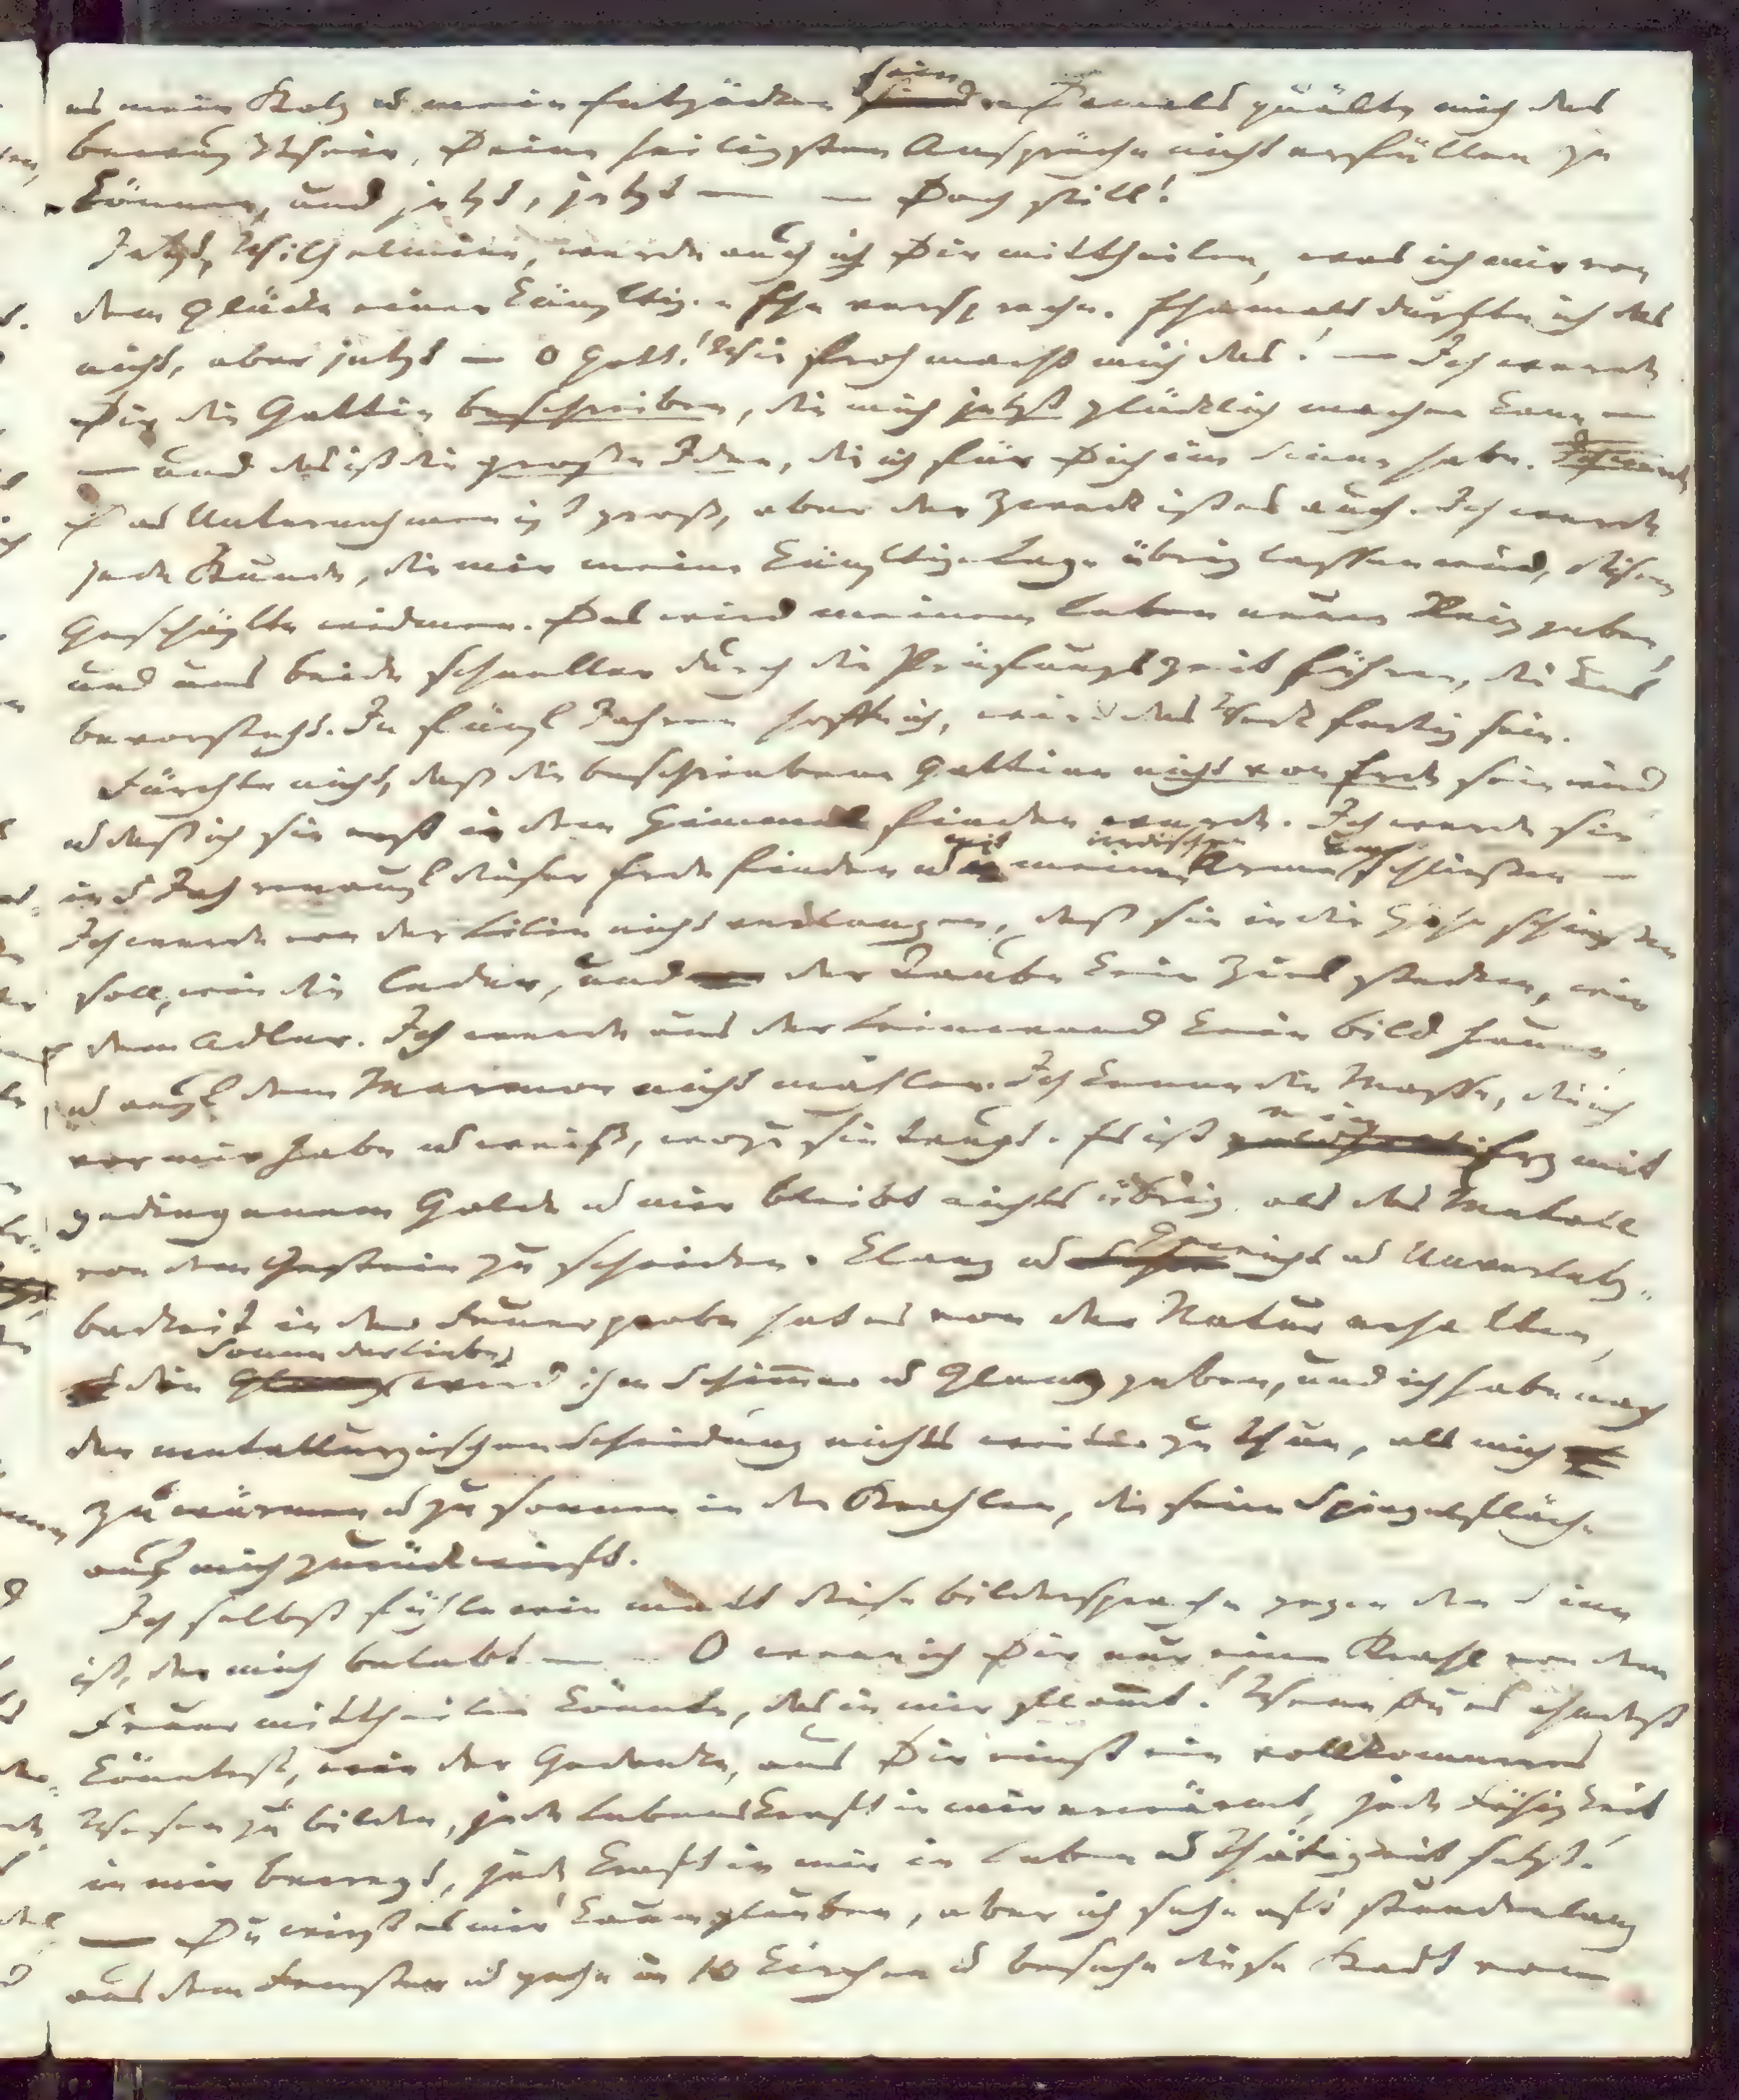 es mein Stolz u mein Entzücken sein. Damals quälte mich das
bewußtsein, Deine heiligsten Ansprüche nicht erfüllen zu
können, und jetzt, jetzt — — Doch still!
Jetzt, Wilhelmine, werde auch ich Dir mittheilen, was ich mir von
dem Glücke einer künftigen Ehe verspreche. Ehemals durfte ich das
nicht, aber jetzt — o Gott! Wie froh macht mich das! — Ich werde
Dir die Gattin beschreiben, die mich jetzt glücklich machen kann —
— und das ist die große Idee, die ich für Dich im Sinne habe.
Das Unternehmen ist groß, aber der Zweck ist es auch. Ich werde
jede Stunde, die mir meine künftige Lage übrig lassen wird, diesem
Geschäfte widmen. Das wird meinem Leben neuen Reiz geben,
und uns beide schneller durch die Prüfungszeit führen, die uns
bevorsteht. In fünf Jahren, hoffe ich, wird das Werk fertig sein.
Fürchte nicht, daß die beschriebene Gattinn nicht von Erde sein wird
u daß ich sie erst in dem Himmel finden werde. Ich werde sie
in 5 Jahren auf dieser Erde finden u mit meinen irdischen Armen umschließen —
Ich werde von der Lilie nicht verlangen, daß sie in die Höhe schießen
soll, wie die Ceder, und der Taube kein Ziel stecken, wie
dem Adler. Ich werde aus der Leinewand kein bild hauen,
u auf dem Marmor nicht mahlen. Ich kenne die Masse, die ich
vor mir habe u weiß, wozu sie taugt. Es ist ein Erz mit
gediegenem Golde u mir bleibt nichts übrig, als das Metall
von dem Gestein zu scheiden. Klang u Gewicht u Unverletz-
barkeit in der Feuerprobe hat es von der Natur erhalten,
die Sonne der Liebe wird ihm Schimmer u Glanz geben, und ich habe nach
der metallurgischen Scheidung nichts weiter zu thun, als mich
zu wärmen u zu sonnen in den Strahlen, die seine Spiegelfläche
auf mich zurückwirft.
Ich selbst fühle wie matt diese bildersprache gegen den Sinn
ist, der mich belebt — — O wenn ich Dir nur einen Strahl von dem
Feuer mittheilen könnte, das in mir flammt! Wenn Du es ahnden
könntest, wie der Gedanke, aus Dir einst ein vollkommnes
Wesen zu bilden, jede Lebenskraft in mir erwärmt, jede Fähigkeit
in mir bewegt, jede Kraft in mir in Leben u Thätigkeit setzt!
— Du wirst es mir kaum glauben, aber ich sehe oft stundenlang
aus dem Fenster u gehe in 10 Kirchen u besehe diese Stadt von